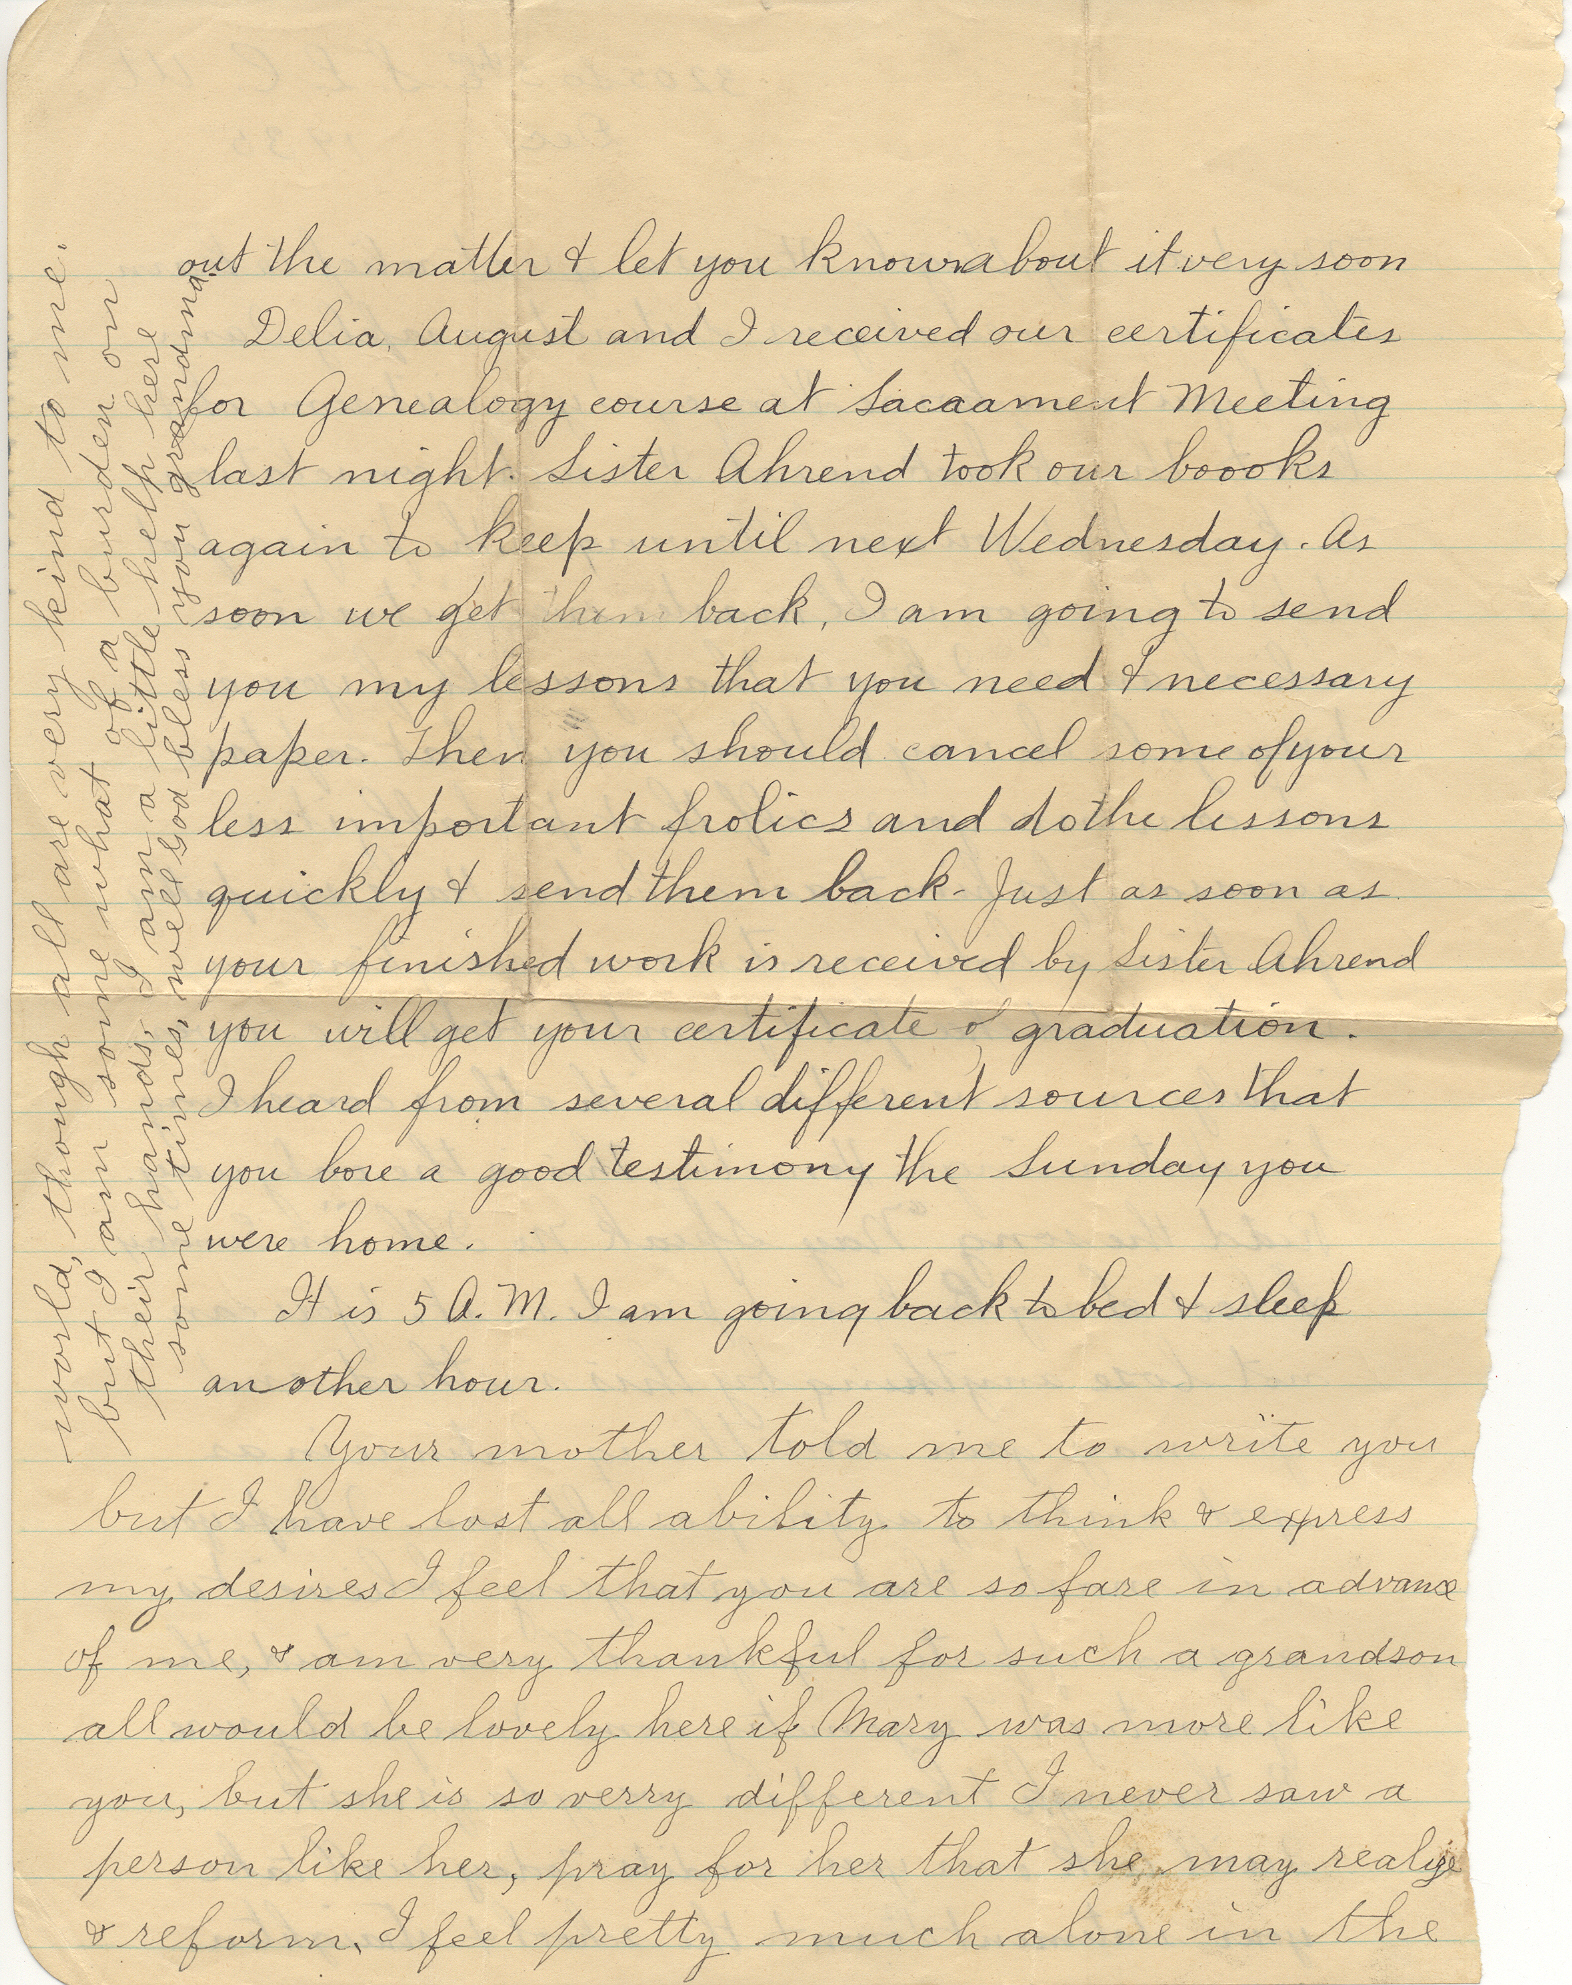 out the matter & let you know about it very soon
Delia, August and I received our certificates
for Genealogy course at Sacaament Meeting
last night. Sister Ahrend took our boooks
again to keep until next Wednesday. As
soon we get them back, I am going to send
you my lessons that you need & necessary
paper. Then you should cancel some of your
less important frolics and do the lessons
quickly & send them back - Just as soon as
your finished work is received by Sister Ahrend
you will get your certificate of graduation.
I heard from several different sources that
you bore a good testimony the Sunday you
were home.
It is 5 A.M. I am going back to bed & sleep
another hour.
Your mother told me to write you
but I have lost all ability to think & express
my desires I feel that you are so fare in advance
of me, & am very thankful for such a grandson
all would be lovely here if Mary was more like
you, but she is so verry different I never saw a
person like her, pray for her that she may realize
& reform, I feel pretty much alone in the
world, though all are very kind to me.
but I am some what of a burden on
their hands, I am a little help here
some times, well God bless you grandma.